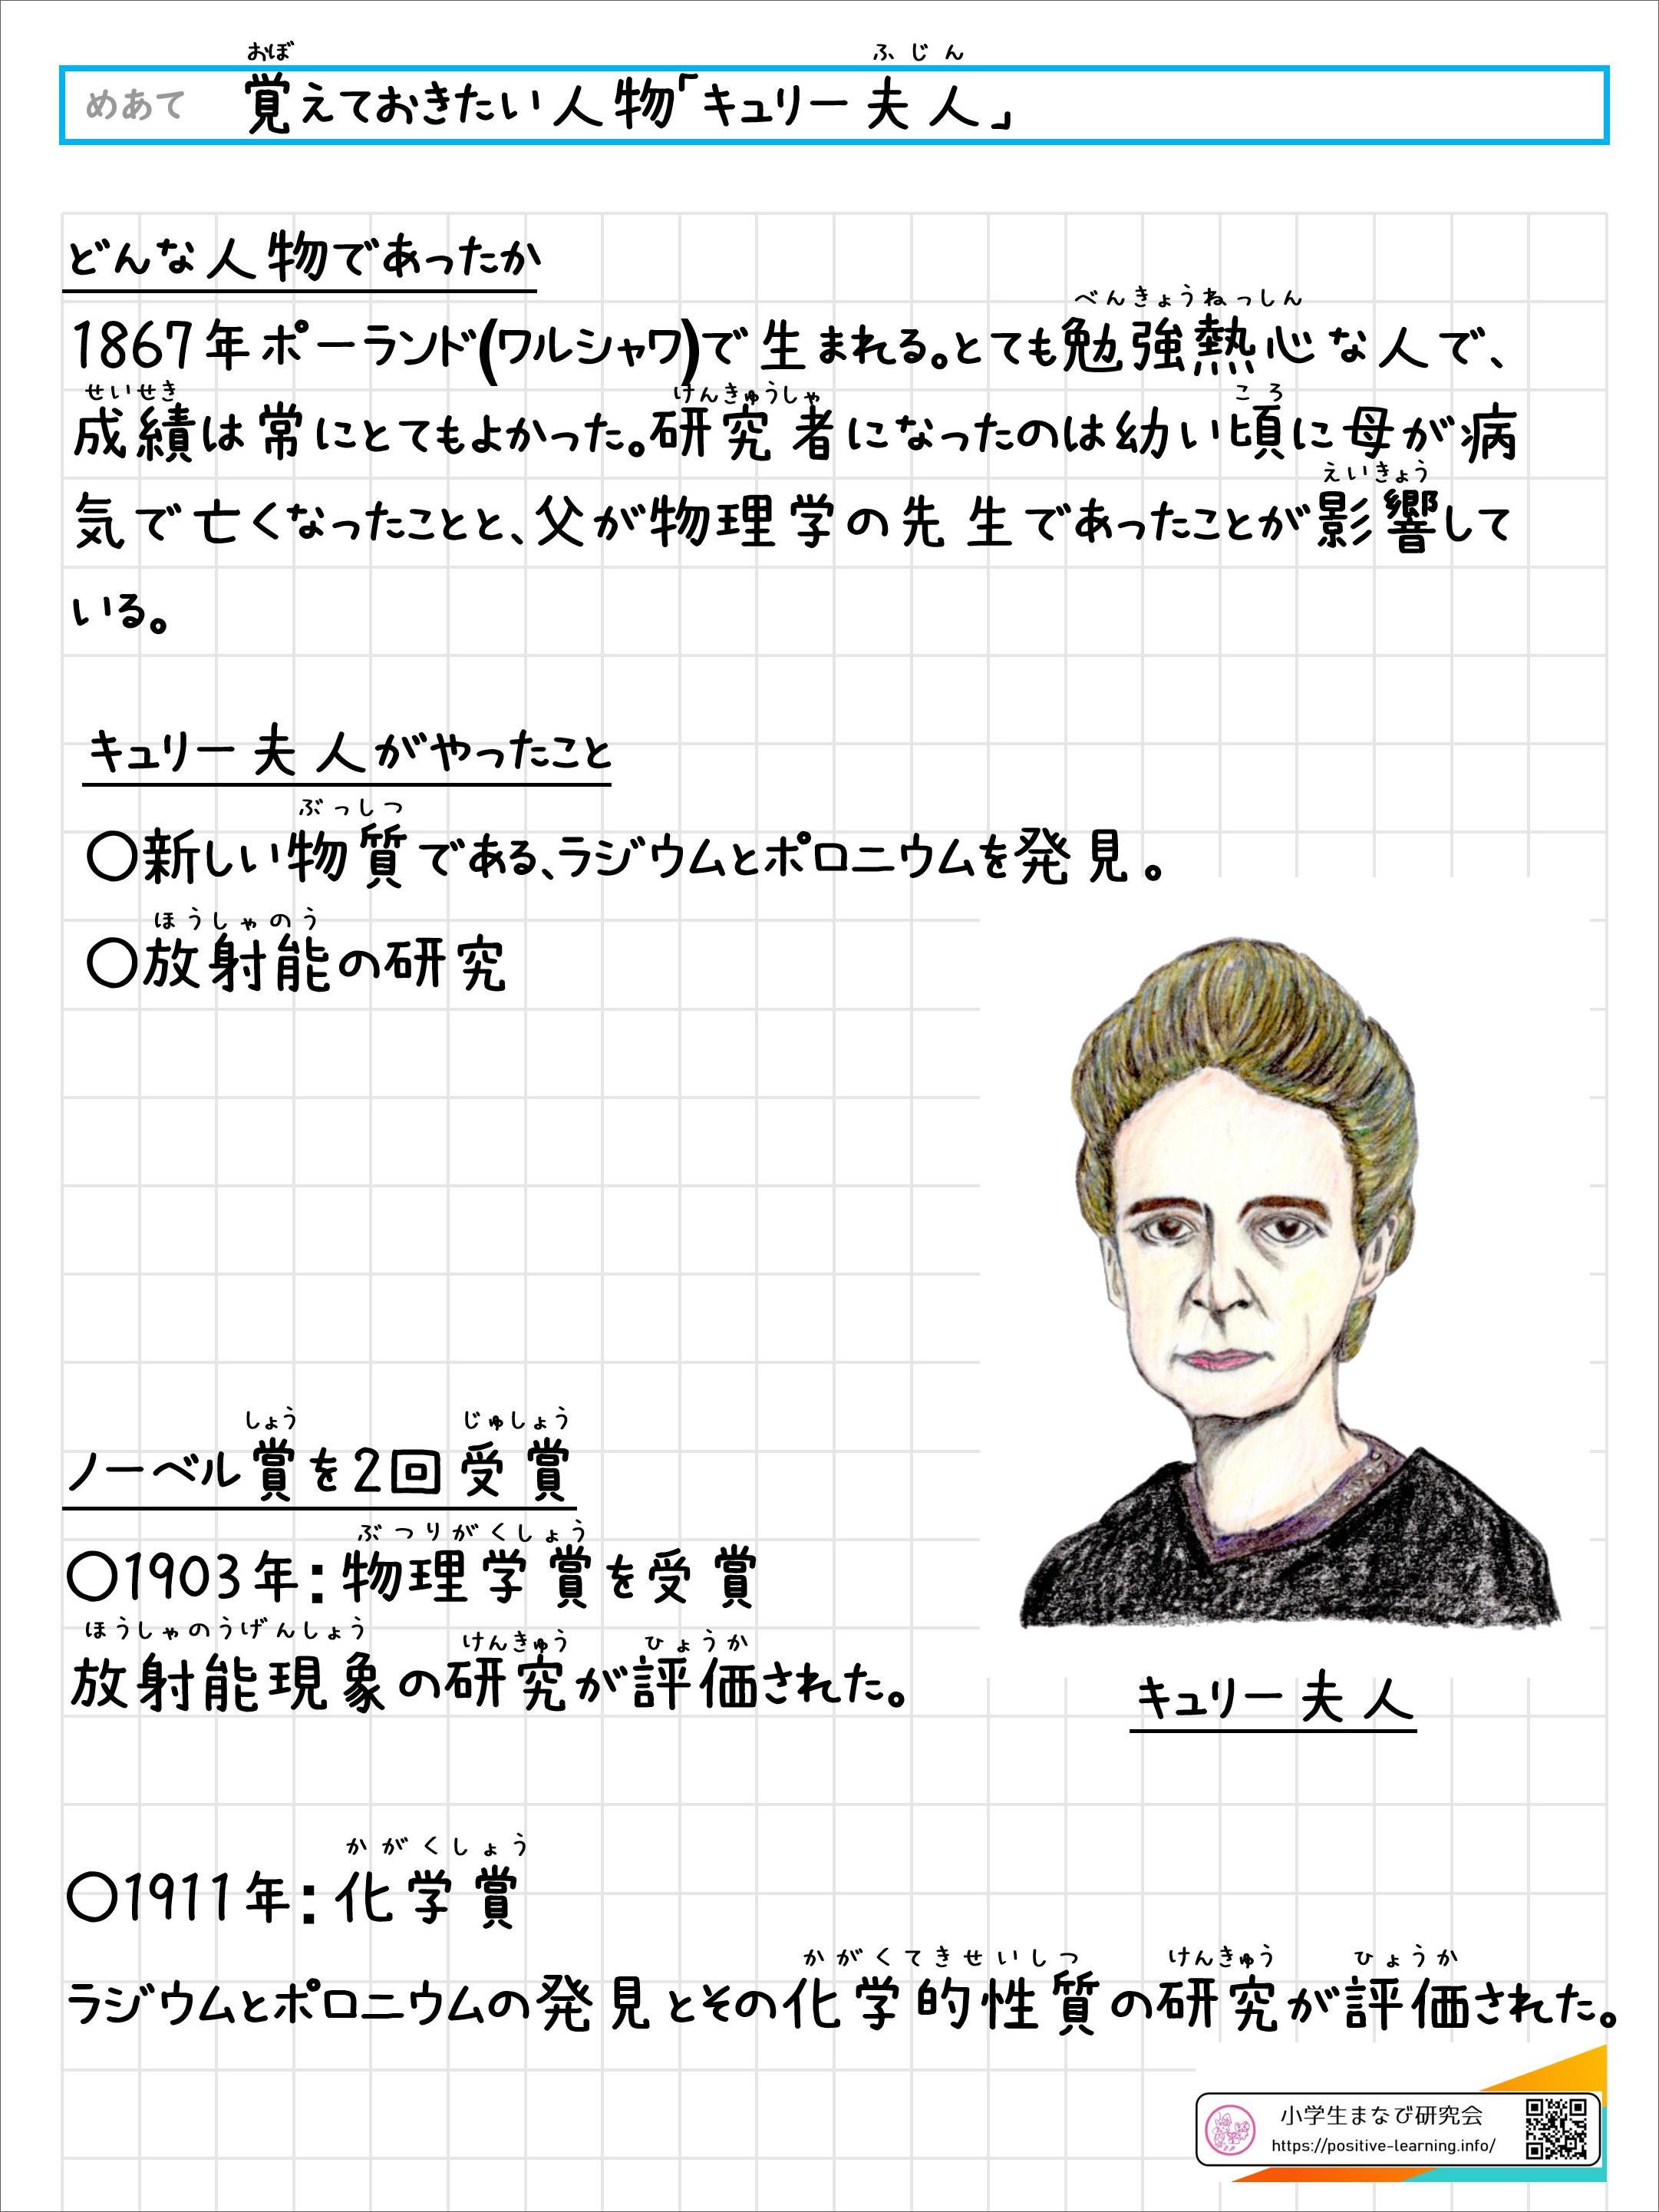 おぼ ふじん
めあて 覚えておきたい人物「キュリー夫人」
どんな人物であったか
べんきょうねっしん
1867年ポーランド(ワルシャワ)で生まれる。とても勉強熱心な人で、
せいせき けんきゅうしゃ ころ
成績は常にとてもよかった。研究者になったのは幼い頃に母が病
えいきょう
気で亡くなったことと、父が物理学の先生であったことが影響して
いる。
キュリー夫人がやったこと
ぶっしつ
○新しい物質である、ラジウムとポロニウムを発見。
ほうしゃのう
○放射能の研究
しょう じゅしょう
ノーベル賞を2回受賞
ぶつりがくしょう
○1903年:物理学賞を受賞
ほうしゃのうげんしょう けんきゅう ひょうか
放射能現象の研究が評価された。
キュリー夫人
かがくしょう
○1911年:化学賞
かがくてきせいしつ けんきゅう ひょうか
ラジウムとポロニウムの発見とその化学的性質の研究が評価された。
小学生まなび研究会
https://positive-learning.info/